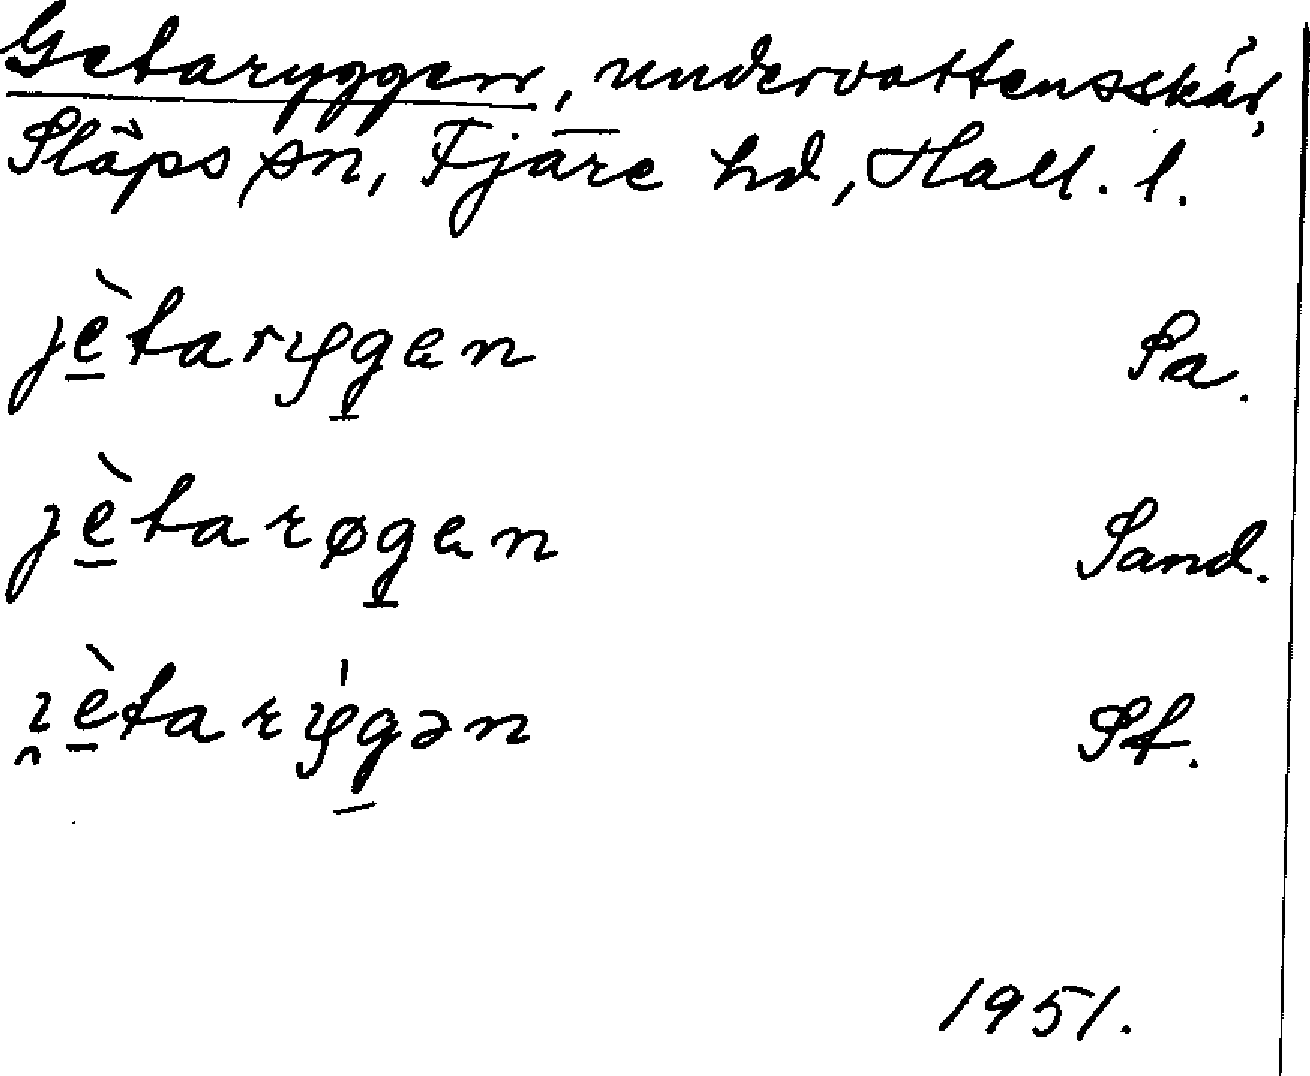 Getaryggen, undervattensskär,
Släps sn, Fjäre hd, Hall. l.
jè̱taryg̱en Sa.
jè̱tarøg̱en Sand.
ɪ̯è̱tarýg̱ən Sf.
1951.